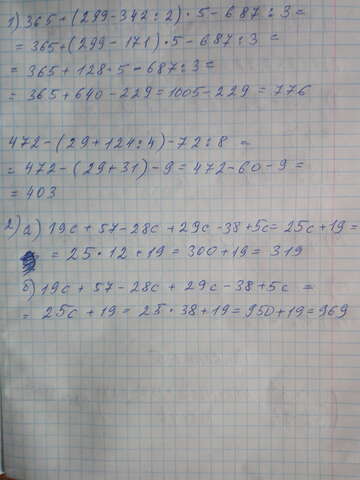 1) 365 + (299 - 342 : 2) · 5 - 687 : 3 =
= 365 + (299 - 171) · 5 - 687 : 3 =
= 365 + 128 · 5 - 687 : 3 =
= 365 + 640 - 229 = 1005 - 229 = 776
472 - (29 + 124 : 4) - 72 : 8 =
= 472 - (29 + 31) - 9 = 472 - 60 - 9 =
= 403
2) а) 19c + 57 - 28c + 29c - 38 + 5c = 25c + 19 =
= 25 · 12 + 19 = 300 + 19 = 319
б) 19c + 57 - 28c + 29c - 38 + 5c =
= 25c + 19 = 25 · 38 + 19 = 950 + 19 = 969